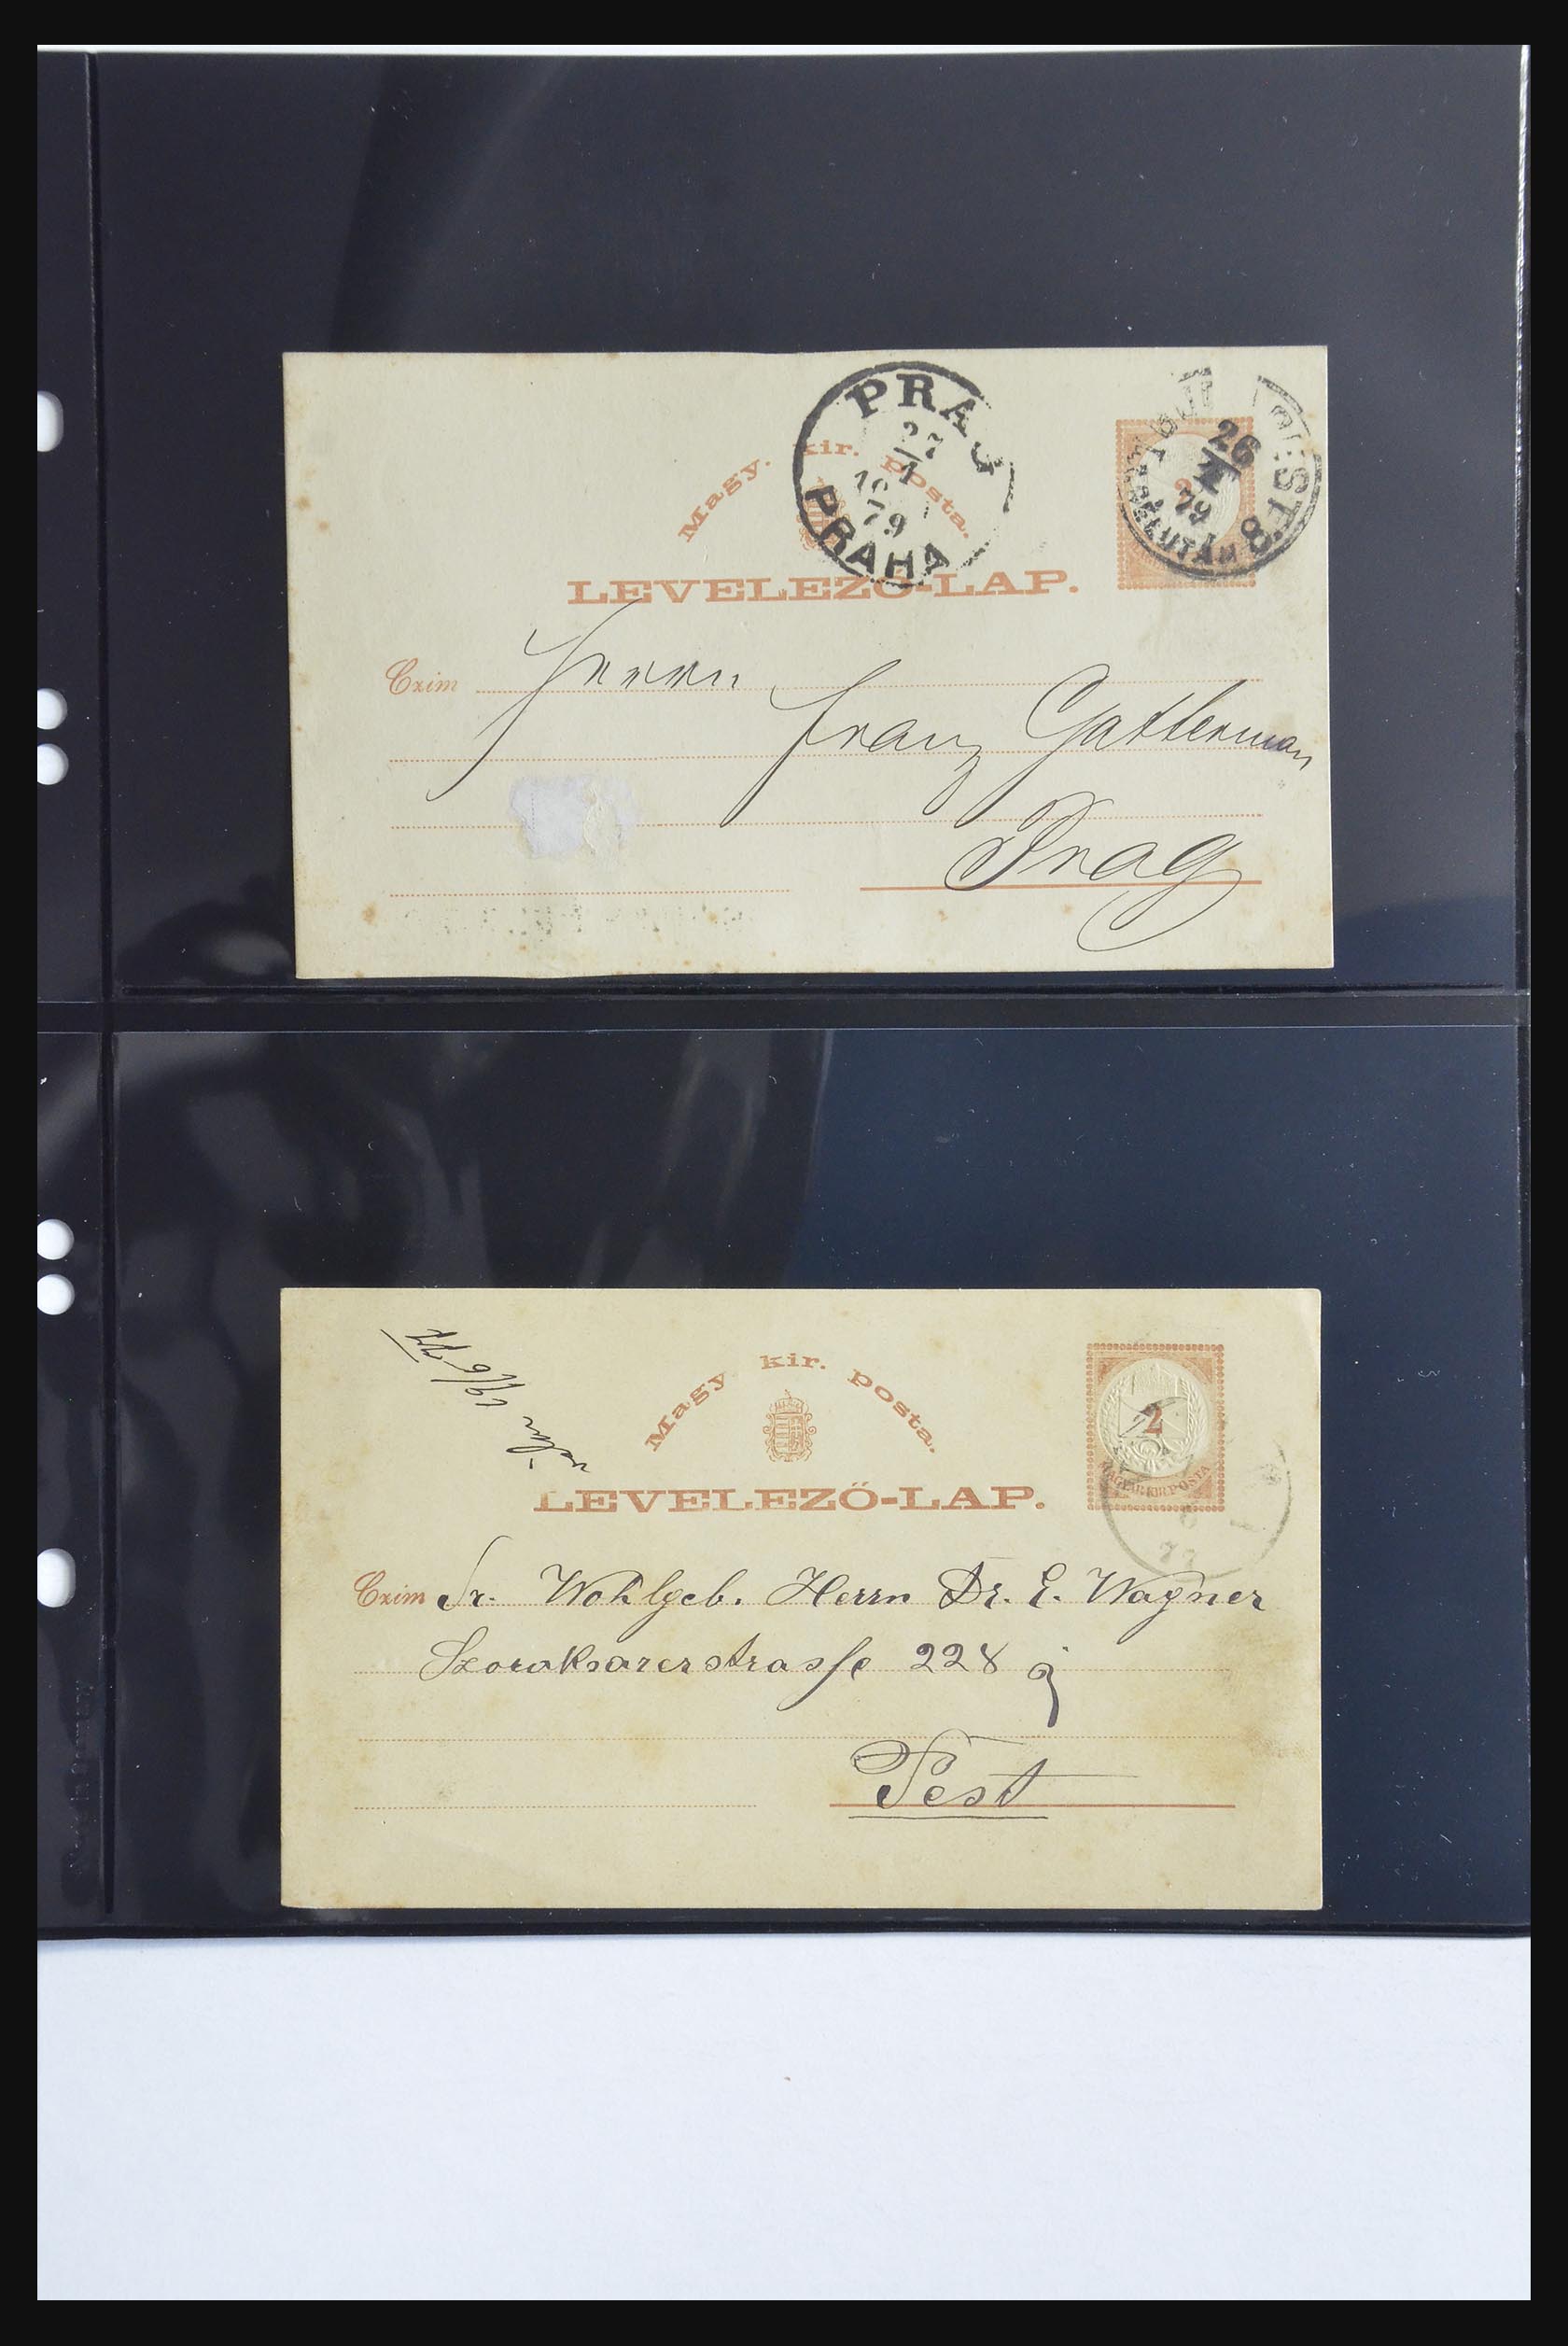 PRAG
27
1
79
PRAHA
BUDAPEST
26
1
79
DÉLUTÁN
8
Magy. kir. posta.
LEVELEZŐ-LAP.
Czim Herrn
Franz Gatterman
Prag
Magy. kir. posta.
2
MAGYAR KIR. POSTA
77
LEVELEZŐ-LAP.
Czim Sr. Wohlgeb. Herrn Dr. E. Wagner
Szoroksarerstrasse 228
Pest